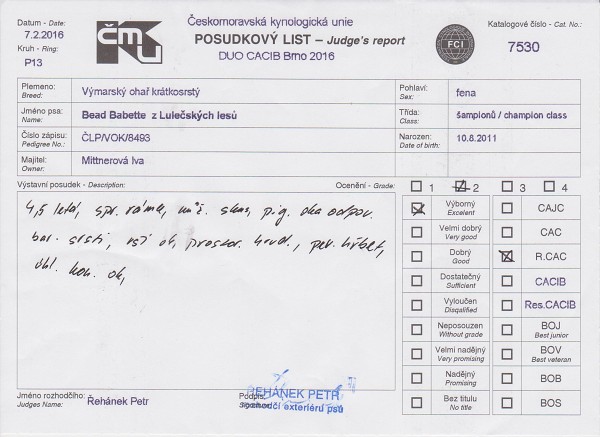 Datum - Date:
7.2.2016
Kruh - Ring:
P13
ČMKU
Českomoravská kynologická unie
POSUDKOVÝ LIST – Judge's report
DUO CACIB Brno 2016
FCI
Katalogové číslo - Cat. No.:
7530
Plemeno:
Breed:
Výmarský ohař krátkosrstý
Pohlaví:
Sex:
fena
Jméno psa:
Name:
Bead Babette z Lulečských lesů
Třída:
Class:
šampionů / champion class
Číslo zápisu:
Pedigree No.:
ČLP/VOK/8493
Narozen:
Date of birth:
10.8.2011
Majitel:
Owner:
Mittnerová Iva
Výstavní posudek - Description:
Ocenění - Grade:
1 2 3 4
4,5 letá, spr. rámec, nůž. skus, pig. oka odpov.
bar. srsti, uši ok, prostor. hrud., pev. hřbet,
úhl. kon. ok,
Výborný
Excelent
CAJC
Velmi dobrý
Very good
CAC
Dobrý
Good
R.CAC
Dostatečný
Sufficient
CACIB
Vyloučen
Disqalified
Res.CACIB
Neposouzen
Without grade
BOJ
Best junior
Velmi nadějný
Very promising
BOV
Best veteran
Nadějný
Promising
BOB
Bez titulu
No title
BOS
Jméno rozhodčího:
Judges Name:
Řehánek Petr
Podpis:
ŘEHÁNEK PETR
rozhodčí exteriéru psů